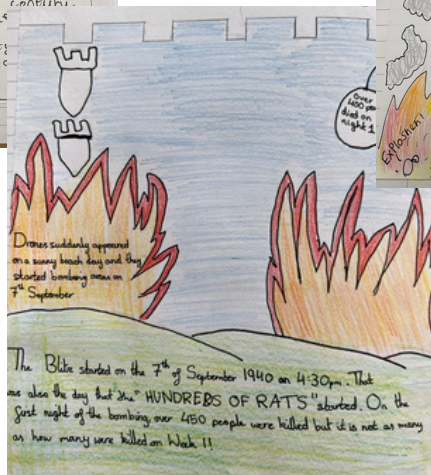 century.
Over
450 peo
died on
night 1
Explosion!
Drones suddenly appeared
on a sunny beach day and they
started bombing areas on
7th September
The Blitz started on the 7th of September 1940 on 4:30pm. That
was also the day that the "HUNDREDS OF RATS" started. On the
first night of the bombing, over 450 people were killed but it is not as many
as how many were killed on Week 1!